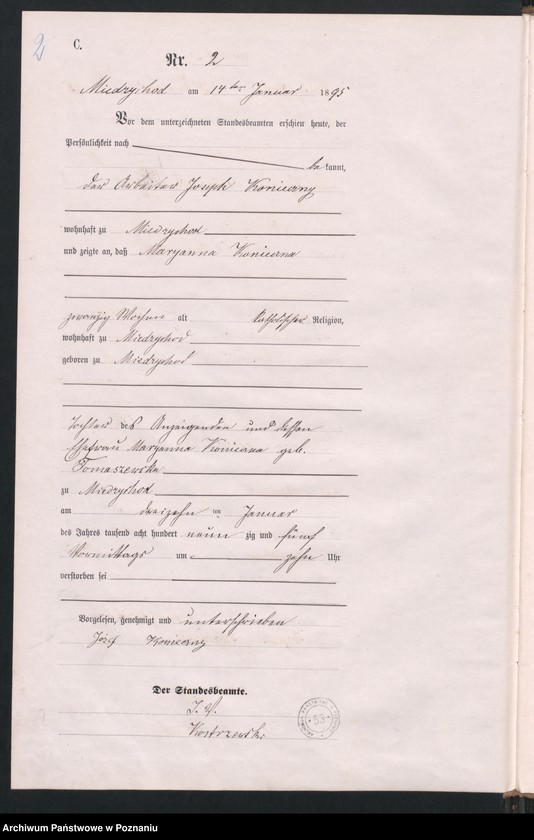 2
C.
Nr. 2
Miedzychod am 14ten Januar 1895
Vor dem unterzeichneten Standesbeamten erschien heute, der
Persönlichkeit nach
bekannt,
der Arbeiter Joseph Konieczny
wohnhaft zu Miedzychod
und zeigte an, daß Maryanna Konieczna
zwanzig Wochen alt katholischer Religion,
wohnhaft zu Miedzychod
geboren zu Miedzychod
Tochter des Anzeigenden und dessen
Ehefrau Maryanna Konieczna geb.
Tomaszewska
zu Miedzychod
am dreizehn ten Januar
des Jahres tausend acht hundert neun zig und fünf
Vormittags um zehn Uhr
verstorben sei
Vorgelesen, genehmigt und unterschrieben
Józef Konieczny
Der Standesbeamte.
J. V.
Kostrzewski
53
Archiwum Państwowe w Poznaniu